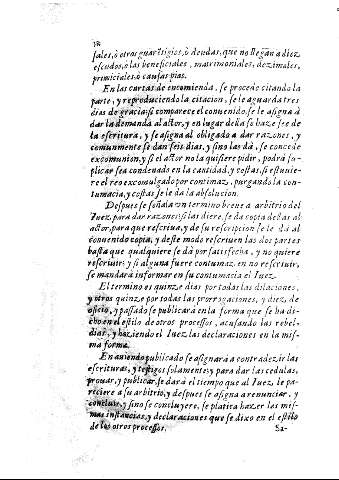 ſales, ò otros guareſtigios, ò deudas, que no llegan a diez
eſcudos, ò las beneficiales, matrimoniales, dezimales,
primiciales, ò cauſas pias.
En las cartas de encomienda, ſe procede citando la
parte, y reproduciendo la citacion, ſe le aguarda tres
dias de gracia: ſi comparece el contenido, ſe le aſigna à
dar la demanda al actor, y en lugar della ſe haze fee de
la eſcritura, y ſe aſigna al obligado a dar razones, y
comunmente ſe dan ſeis dias, y ſino las dà, ſe concede
excomunion, y ſi el actor no la quiſiere pidir, podrà ſu-
plicar ſea condenado en la cantidad, y coſtas: ſi eſtuuie-
re el reo excomulgado por contimaz, purgando la con-
tumacia, y coſtas ſe le da la abſolucion.
Deſpues ſe ſeñala vn termino breue a arbitrio del
Iuez, para dar razones: ſi las diere, ſe da copia dellas al
actor, para que reſcriua, y de ſu reſcripcion ſe le dà al
contenido copia, y deſte modo reſcriuen las dos partes
haſta que qualquiere ſe dà por ſatisfecha, y no quiere
reſcriuir; y ſi alguna fuere contumaz en no reſcriuir,
ſe mandarà informar en ſu contumacia el Iuez.
El termino es quinze dias por todas las dilaciones,
y otros quinze por todas las prorrogaciones, y diez de
oficio, y paſſado ſe publicarà en la forma que ſe ha di-
cho en el eſtilo de otros proceſſos, acuſando las rebel-
dias, y haziendo el Iuez las declaraciones en la miſ-
ma forma.
En auiendo publicado ſe aſignarà a contradezir las
eſcrituras, y teſtigos ſolamente, y para dar las cedulas,
prouar, y publicar, ſe darà el tiempo que al Iuez le pa-
reciere a ſu arbitrio, y deſpues ſe aſigna a renunciar, y
concluir, y ſino ſe concluyere, ſe platica hazer las miſ-
mas inſtancias, y declaraciones que ſe dixo en el eſtilo
de los otros proceſſos.
Sa-